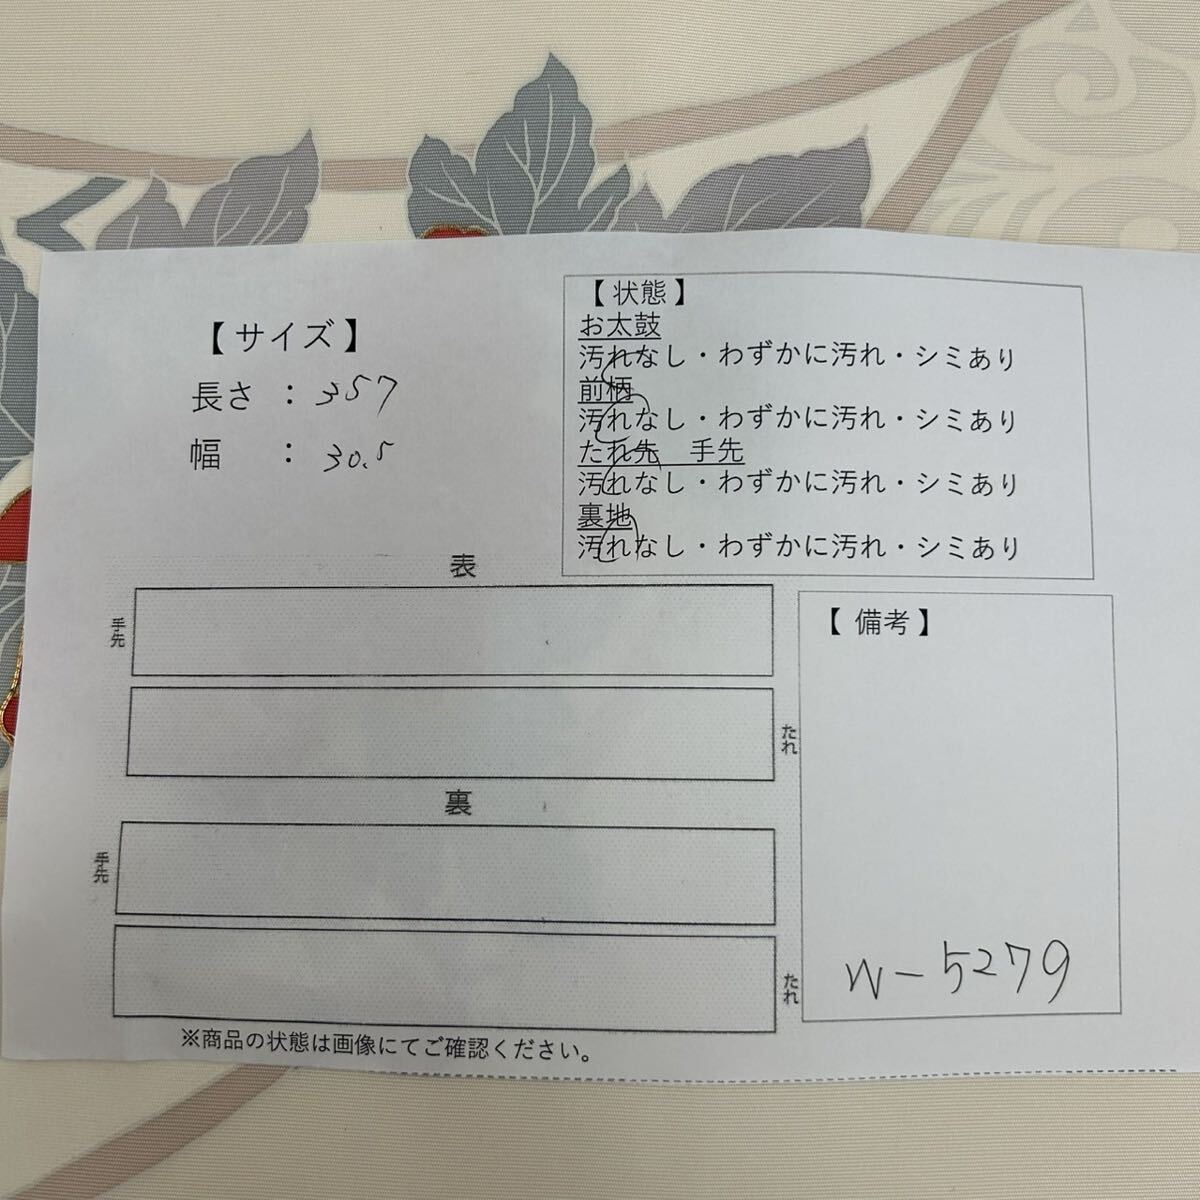 【サイズ】
長さ ： 357
幅 ： 30.5
【状態】
お太鼓
汚れなし・わずかに汚れ・シミあり
前柄
汚れなし・わずかに汚れ・シミあり
たれ先 手先
汚れなし・わずかに汚れ・シミあり
裏地
汚れなし・わずかに汚れ・シミあり
表
手先
たれ
裏
手先
たれ
※商品の状態は画像にてご確認ください。
【備考】
W-5279